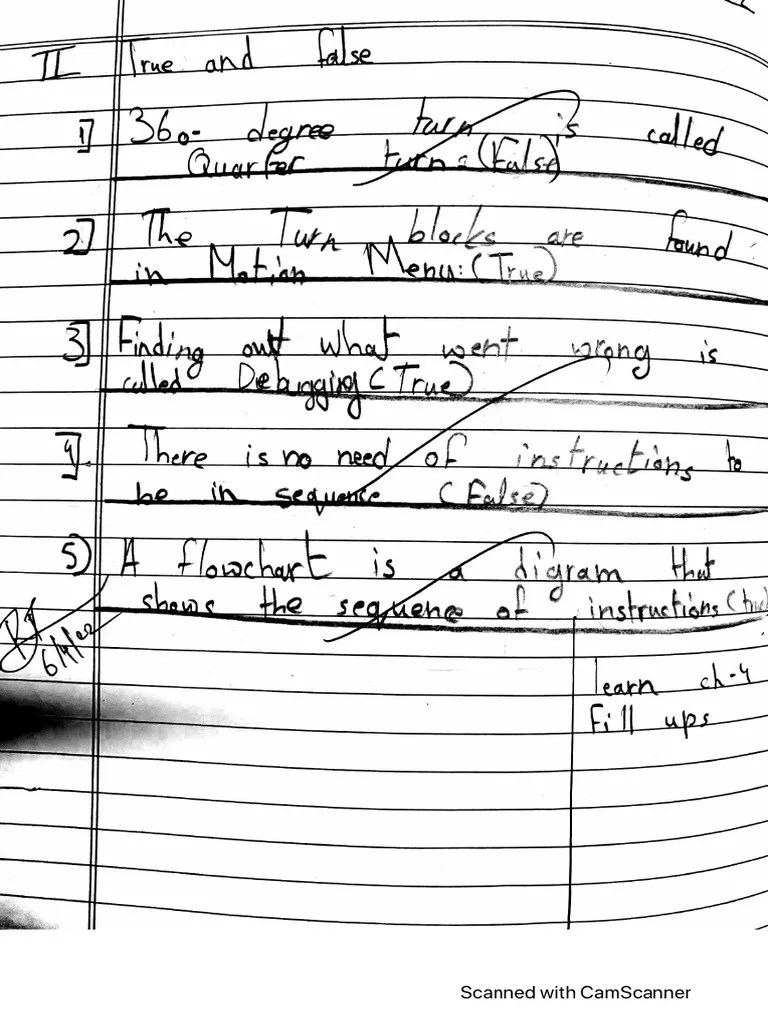 II True and false
1] 360- degree turn is called
Quarter turn = (False)
2] The Turn blocks are found
in Motion Menu: (True)
3] Finding out what went wrong is
called Debugging (True)
4] There is no need of instructions to
be in sequence (False)
5) A flowchart is a digram that
shows the sequence of instructions (true)
6/4/22
learn ch-4
Fill ups
Scanned with CamScanner